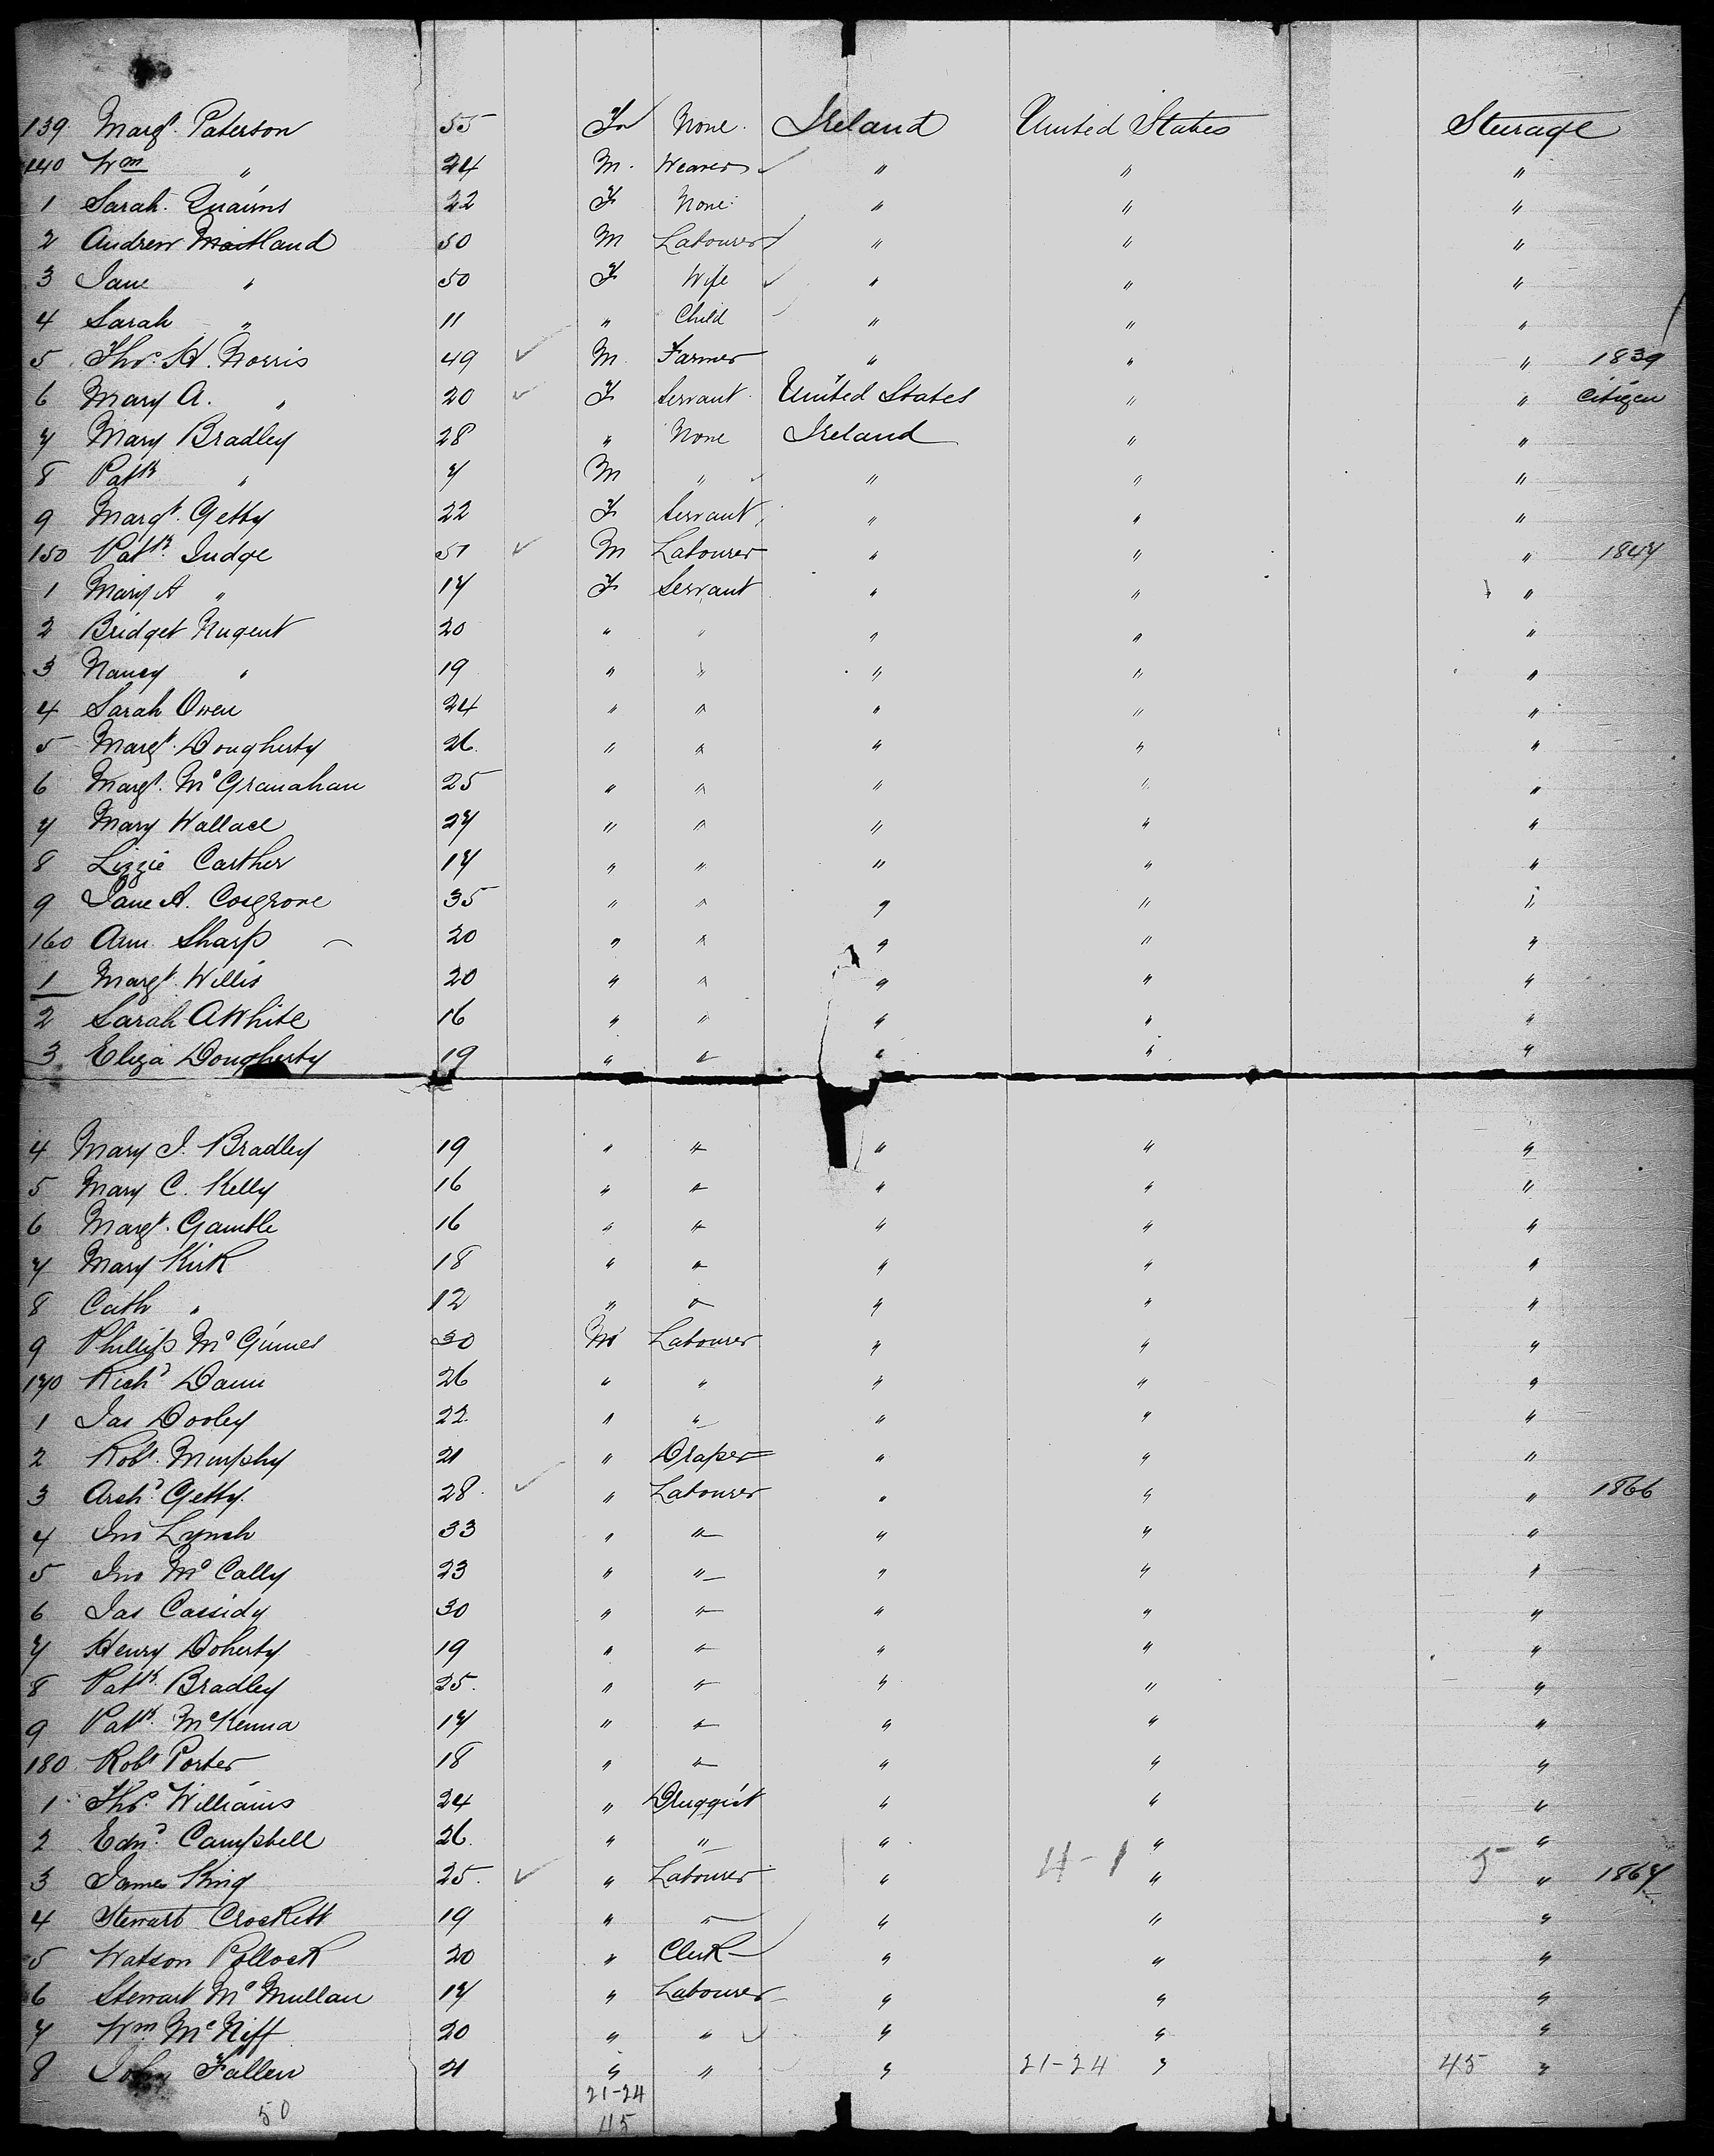 139 Margt. Paterson 55 F None. Ireland United States Steerage
140 Wm " 24 M. Weaver " " "
1 Sarah Quairns 22 F None " " "
2 Andrew Maitland 50 M Labourer " " "
3 Jane " 50 F Wife " " "
4 Sarah " 11 " Child " " "
5 Thos. H. Norris 49 ✓ M. Farmer " " " 1839
6 Mary A. " 20 ✓ F Servant United States " " Citizen
7 Mary Bradley 28 " None Ireland " "
8 Patk " 7 M " " " "
9 Margt. Getty 22 F Servant " " "
150 Patk. Judge 51 ✓ M Labourer " " " 1847
1 Mary A " 17 F Servant " " "
2 Bridget Nugent 20 " " " " "
3 Nancy " 19 " " " " "
4 Sarah Owen 24 " " " " "
5 Margt. Dougherty 26. " " " " "
6 Margt. McGranahan 25 " " " " "
7 Mary Wallace 27 " " " " "
8 Lizzie Carther 17 " " " " "
9 Jane A. Cosgrove 35 " " " " "
160 Ann Sharp 20 " " " " "
1 Margt. Willis 20 " " " " "
2 Sarah A White 16 " " " " "
3 Eliza Dougherty 19 " " " " "
4 Mary J. Bradley 19 " " " " "
5 Mary C. Kelly 16 " " " " "
6 Margt. Gamble 16 " " " " "
7 Mary Kirk 18 " " " " "
8 Cath " 12 " " " " "
9 Phillip McGinnes 30 M Labourer " " "
170 Richd 26 " " " " "
1 Jas Dooley 22 " " " " "
2 Robt. Murphy 21 " Draper " " "
3 Archd. Getty. 28. ✓ " Labourer " " " 1866
4 Jno Lynch 33 " " " " "
5 Jno McCally 23 " " " " "
6 Jas Cassidy 30 " " " " "
7 Henry Doherty 19 " " " " "
8 Patk. Bradley 25. " " " " "
9 Patk. McKenna 17 " " " " "
180 Robt Porter 18 " " " " "
1 Thos. Williams 24 " Druggist " " "
2 Edwd. Campbell 26. " " " " "
3 James King 25. ✓ " Labourer " 4-1 " 5 " 1867
4 Stewart Crockett 19 " " " " "
5 Watson Pollock 20 " Clerk " " "
6 Stewart McMullan 17 " Labourer " " "
7 Wm. McNiff 20 " " " " "
8 John Fallen 21 " " " 21-24 " 45 "
50 21-24
45